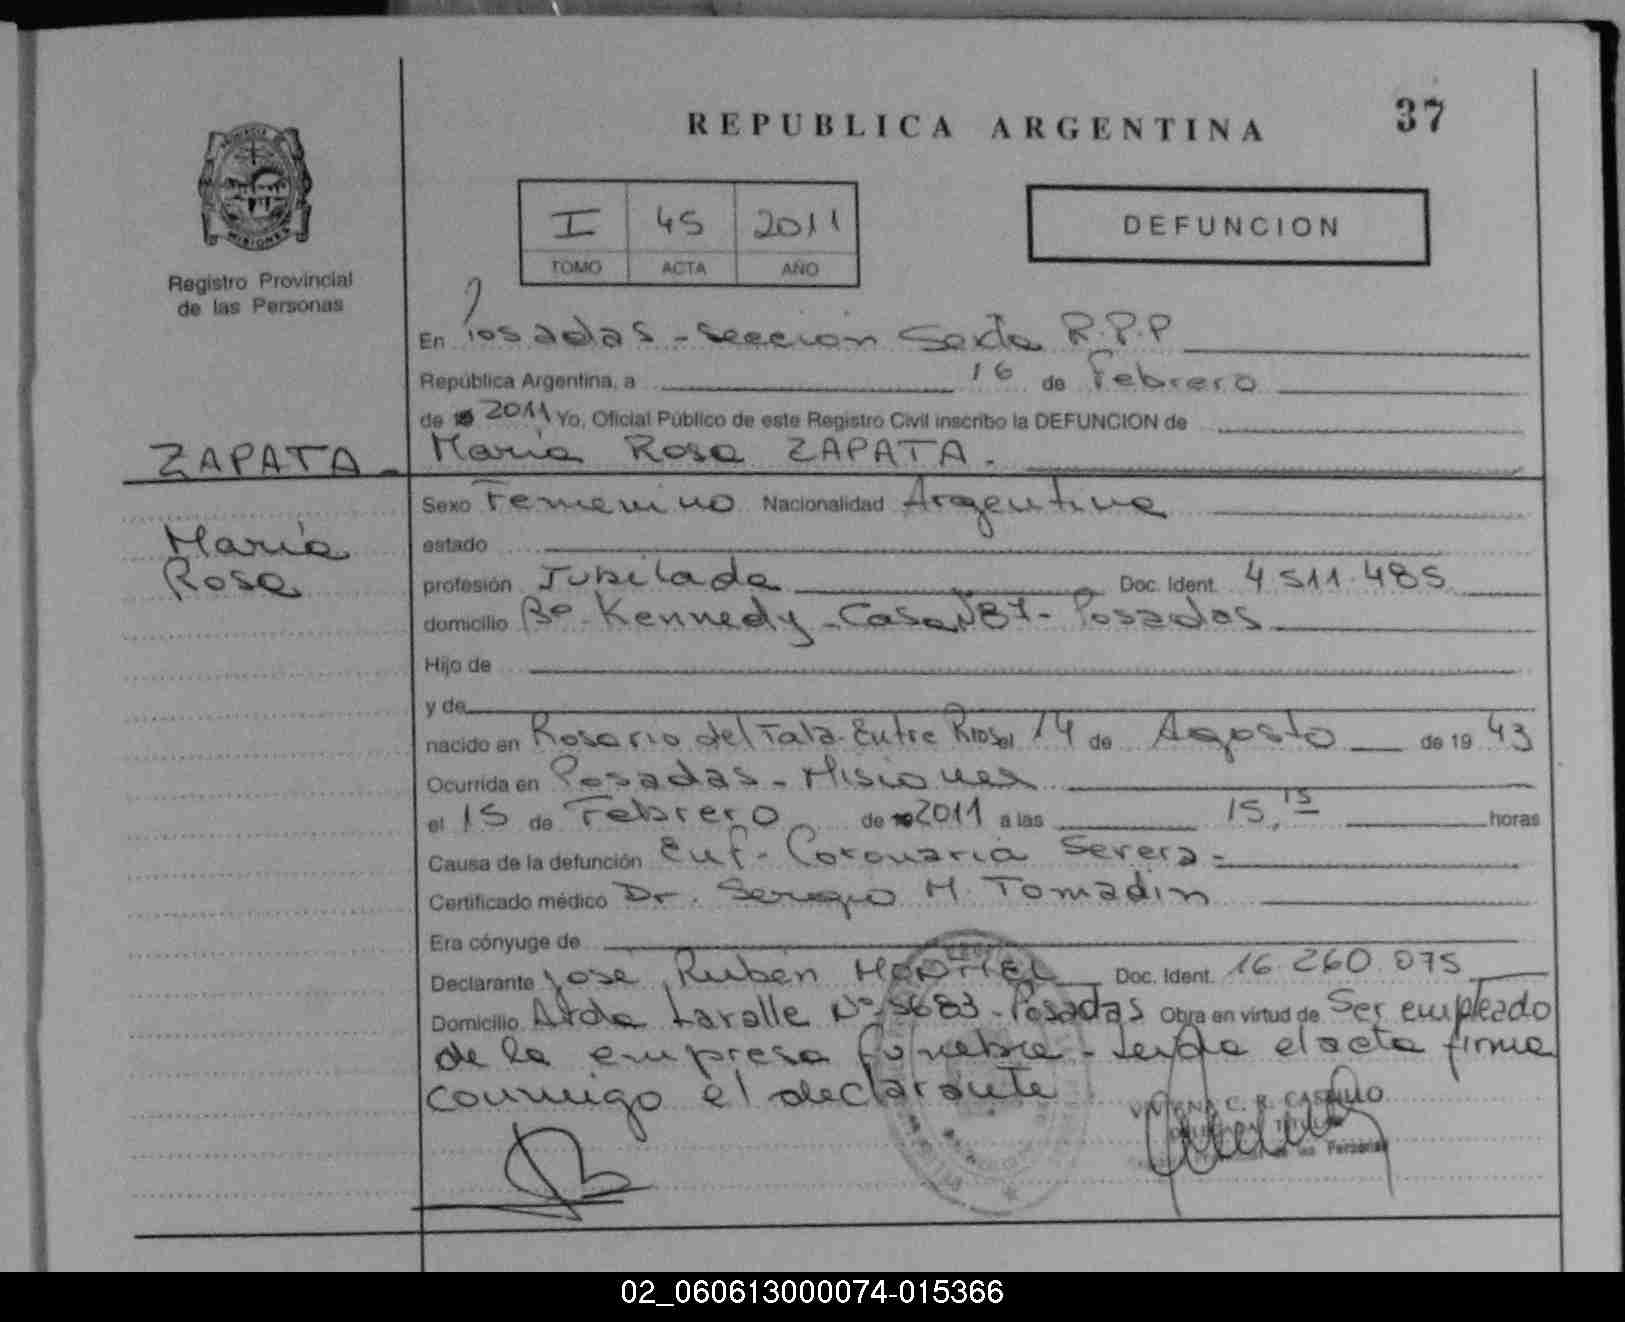 REPUBLICA ARGENTINA
37
Registro Provincial
de las Personas
MISIONES
I 45 2011
TOMO ACTA AÑO
DEFUNCION
En Posadas - Sección Sexta R.P.P
República Argentina, a 16 de Febrero
de 19 2011 Yo, Oficial Público de este Registro Civil inscribo la DEFUNCION de
María Rosa ZAPATA.
ZAPATA -
María
Rosa
Sexo Femenino Nacionalidad Argentina
estado
profesión Jubilada Doc. Ident. 4.511.485
domicilio Bº Kennedy - Casa Nº 87 - Posadas
Hijo de
y de
nacido en Rosario del Tala - Entre Rios el 14 de Agosto de 19 43
Ocurrida en Posadas - Misiones
el 15 de Febrero de 19 2011 a las 15,15 horas
Causa de la defunción Enf - Coronaria Severa =
Certificado médico Dr. Sergio M. Tomadin
Era cónyuge de
Declarante José Rubén Doc. Ident. 16.260.075
Domicilio Avda Lavalle Nº 5683 - Posadas Obra en virtud de Ser empleado
de la empresa fúnebre - Leída el acta firma
conmigo el declarante
C. R. CASTILLO
de las Personas
02_060613000074-015366